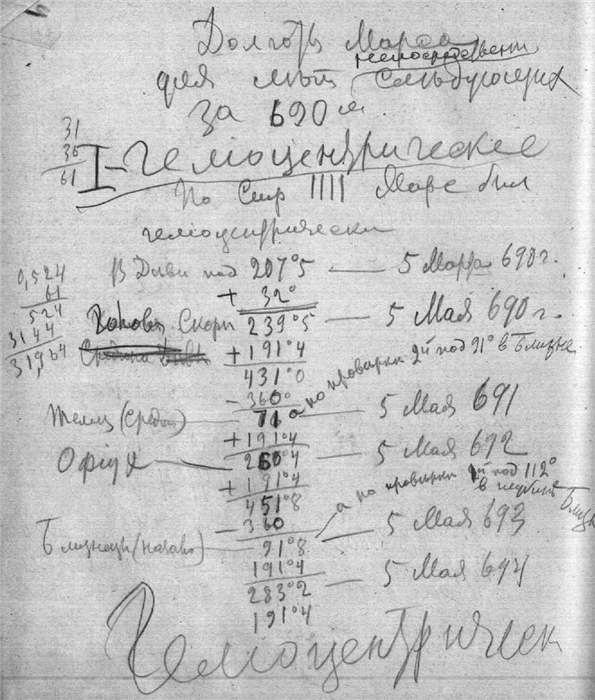 Долготы Марса
непосредственно
для лет следующих
за 690 м
31
30
61
I – Гелиоцентрическое
По стр IIII Марс был
гелиоцентрически
В Деве под 207°5 — 5 Марта 690 г.
0,524
61
524
3144
31,964
+ 32°
Голова Скорп 239°5 — 5 Мая 690 г.
Средина Девы
+ 191°4
431°0
а по проверки 2й под 91° в Близне
– 360°
Телец (Средин) — 71 — 5 Мая 691
+ 191°4
Офіух — 260°4 — 5 Мая 692
+ 191°4
451°8
а по проверки под 112°
в глубине Близн
– 360
Близнецы (начало) — 91°8 — 5 Мая 693
191°4
283°2 — 5 Мая 694
191°4
Гелиоцентрическ